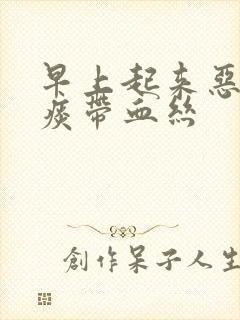 早上起来惡
痰帶血絲
創作呆子人生